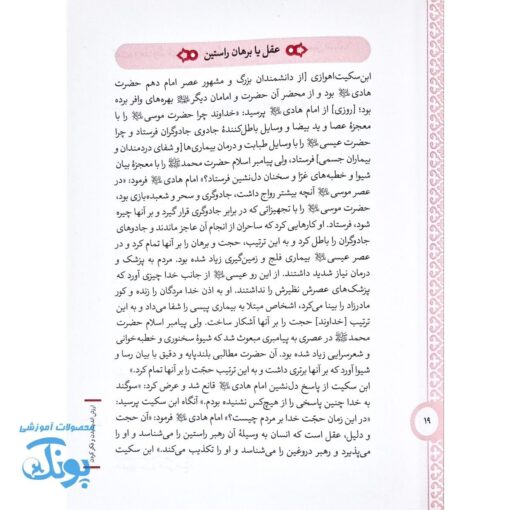 عقل یا برهان راستین
ابن‌سکیت‌اهوازی [از دانشمندان بزرگ و مشهور عصر امام دهم حضرت
هادی بود و از محضر آن حضرت و امامان دیگر بهره‌های وافر برده
بود؛ [روزی] از امام هادی پرسید: «خداوند چرا حضرت موسی را با
معجزهٔ عصا و ید بیضا و وسایل باطل‌کنندهٔ جادوی جادوگران فرستاد و چرا
حضرت عیسی را با وسایل طبابت و درمان بیماری‌ها [و شفای دردمندان و
بیماران جسمی] فرستاد، ولی پیامبر اسلام حضرت محمد را با معجزهٔ بیان
شیوا و خطبه‌های غرّا و سخنان دل‌نشین فرستاد؟» امام هادی فرمود: «در
عصر موسی آنچه بیشتر رواج داشت، جادوگری و سحر و شعبده‌بازی بود،
حضرت موسی را با تجهیزاتی که در برابر جادوگری قرار گیرد و بر آنها چیره
شود، فرستاد. او کارهایی کرد که ساحران از انجام آن عاجز ماندند و جادوهای
جادوگران را باطل کرد و به این ترتیب، حجت و برهان را بر آنها تمام کرد و در
عصر عیسی بیماری فلج و زمین‌گیری زیاد شده بود. مردم به پزشک و
درمان نیاز شدید داشتند. از این رو عیسی از جانب خدا چیزی آورد که
پزشک‌های عصرش نظیرش را نداشتند. او به اذن خدا مردگان را زنده و کور
مادرزاد را بینا می‌کرد، اشخاص مبتلا به بیماری پیسی را شفا می‌داد و به این
ترتیب [خداوند] حجت را بر آنها آشکار ساخت. ولی پیامبر اسلام حضرت
محمد در عصری به پیامبری مبعوث شد که شیوهٔ سخنوری و خطبه‌خوانی
و شعرسرایی زیاد شده بود. آن حضرت مطالبی بلندپایه و دقیق با بیان رسا و
شیوا آورد که بر آنها برتری داشت و به این ترتیب حجّت را بر آنها تمام کرد.»
ابن سکیت از پاسخ دل‌نشین امام هادی قانع شد و عرض کرد: «سوگند
به خدا چنین پاسخی را از هیچ‌کس نشنیده بودم.» آنگاه ابن‌سکیت پرسید:
«در این زمان حجّت خدا بر مردم چیست؟» امام هادی فرمود: «آن حجت
و دلیل، عقل است که انسان به وسیلهٔ آن رهبر راستین را می‌شناسد و او را
می‌پذیرد و رهبر دروغین را می‌شناسد و او را تکذیب می‌کند.» ابن سکیت
۱۹
محصولات آموزشی
پونک